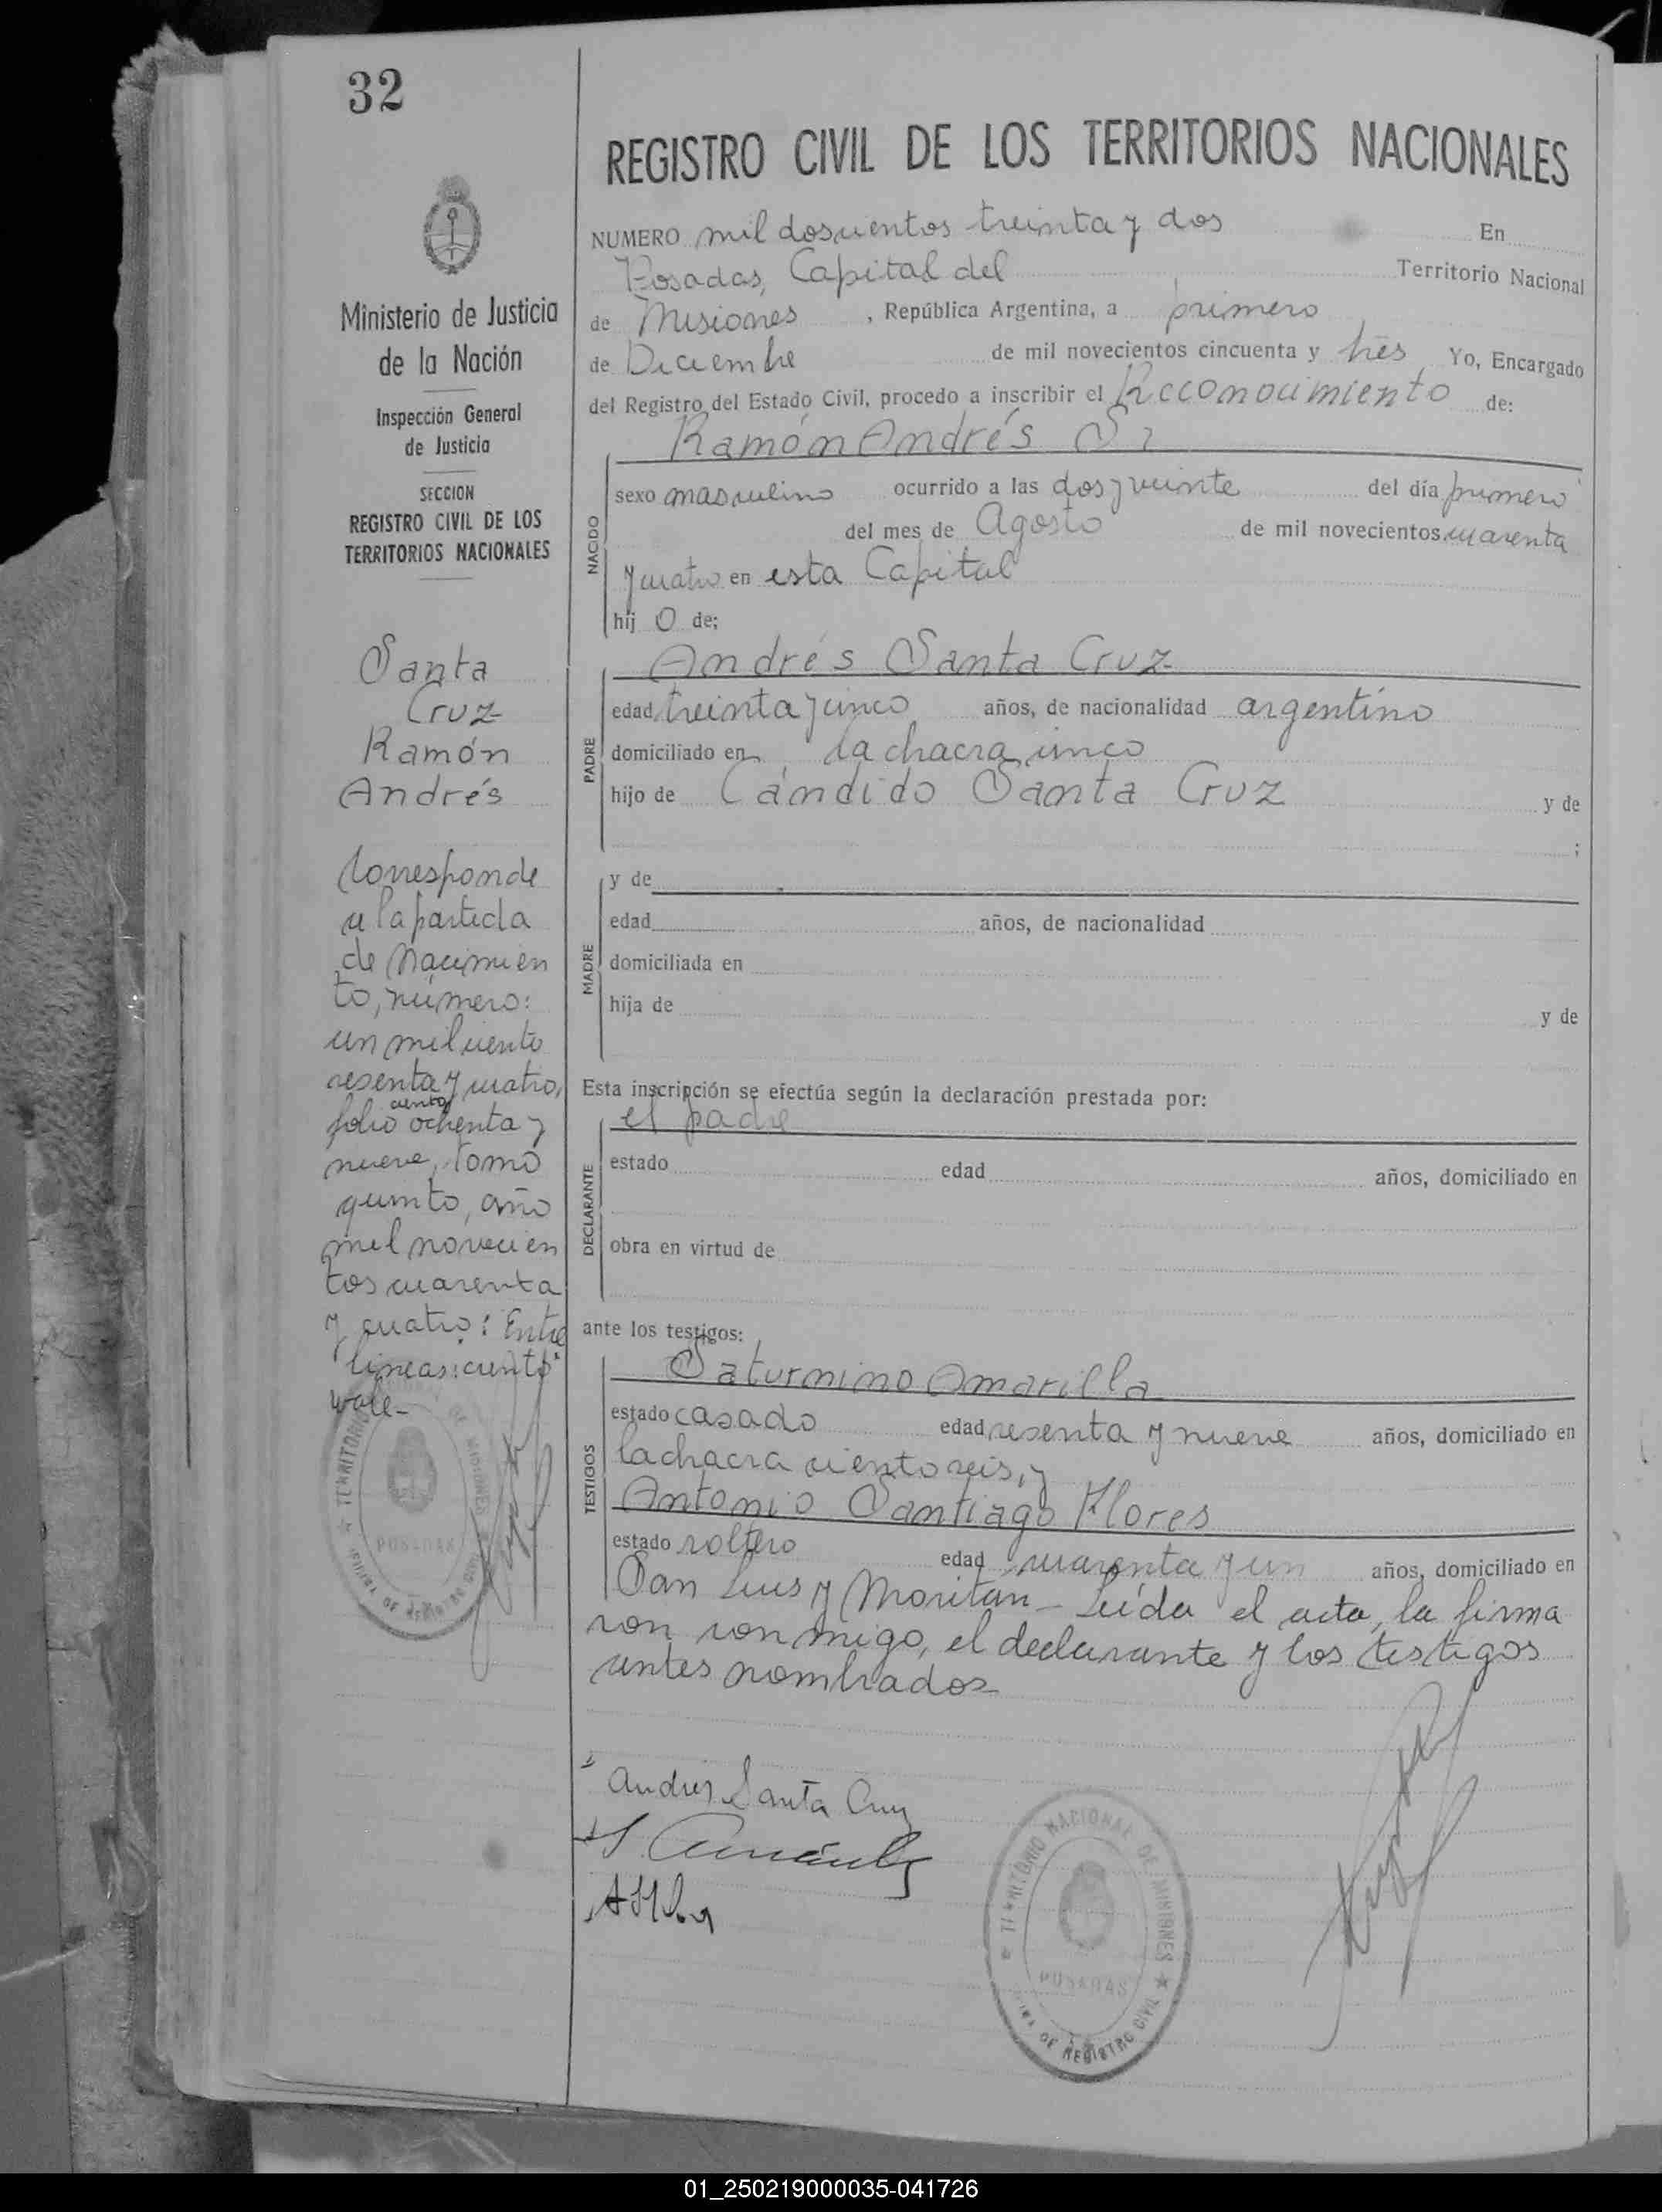 32
REGISTRO CIVIL DE LOS TERRITORIOS NACIONALES
Ministerio de Justicia
de la Nación
Inspección General
de Justicia
SECCION
REGISTRO CIVIL DE LOS
TERRITORIOS NACIONALES
Santa
Cruz
Ramón
Andrés
Corresponde
a la partida
de Nacimien
to, número:
un mil ciento
sesenta y cuatro,
ciento
folio ochenta y
nueve, tomo
quinto, año
mil novecien
tos cuarenta
y cuatro: Entre
líneas: ciento"
vale-
NUMERO mil doscientos treinta y dos En
Posadas, Capital del Territorio Nacional
de Misiones, República Argentina, a primero
de Diciembre de mil novecientos cincuenta y tres, Yo, Encargado
del Registro del Estado Civil, procedo a inscribir el Reconocimiento de:
Ramón Andrés
NACIDO
sexo masculino ocurrido a las dos y veinte del día primero
del mes de Agosto de mil novecientos cuarenta
y cuatro en esta Capital
hij o de;
Andrés Santa Cruz
PADRE
edad treinta y cinco años, de nacionalidad argentino
domiciliado en la chacra cinco
hijo de Cándido Santa Cruz y de
;
MADRE
y de
edad años, de nacionalidad
domiciliada en
hija de y de
Esta inscripción se efectúa según la declaración prestada por:
el padre
DECLARANTE
estado edad años, domiciliado en
obra en virtud de
ante los testigos:
Saturnino Amarilla
TESTIGOS
estado casado edad sesenta y nueve años, domiciliado en
la chacra ciento seis, y
Antonio Santiago Flores
estado soltero edad cuarenta y un años, domiciliado en
San Luis y Moritán - Leída el acta, la firma
ron conmigo, el declarante y los testigos
antes nombrados
Andres Santa Cruz
TERRITORIO NACIONAL DE MISIONES
POSADAS
OFICINA DE REGISTRO CIVIL
01_250219000035-041726